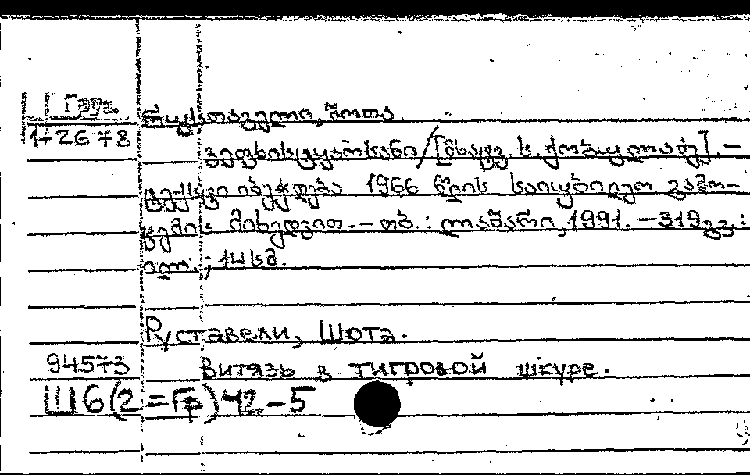 Груз.
1-2678
რუსთაველი, შოთა
ვეფხისტყაოსანი / [მხატვ. ს. ქობულაძე]. –
ტექსტი იბეჭდება 1966 წლის საიუბილეო გამო-
ცემის მიხედვით. – თბ.: ლაშარი, 1991. – 319 გვ.:
ილ.; 14 სმ.
Руставели, Шота.
94573 Витязь в тигровой шкуре.
Ш6(2=Гр)42-5